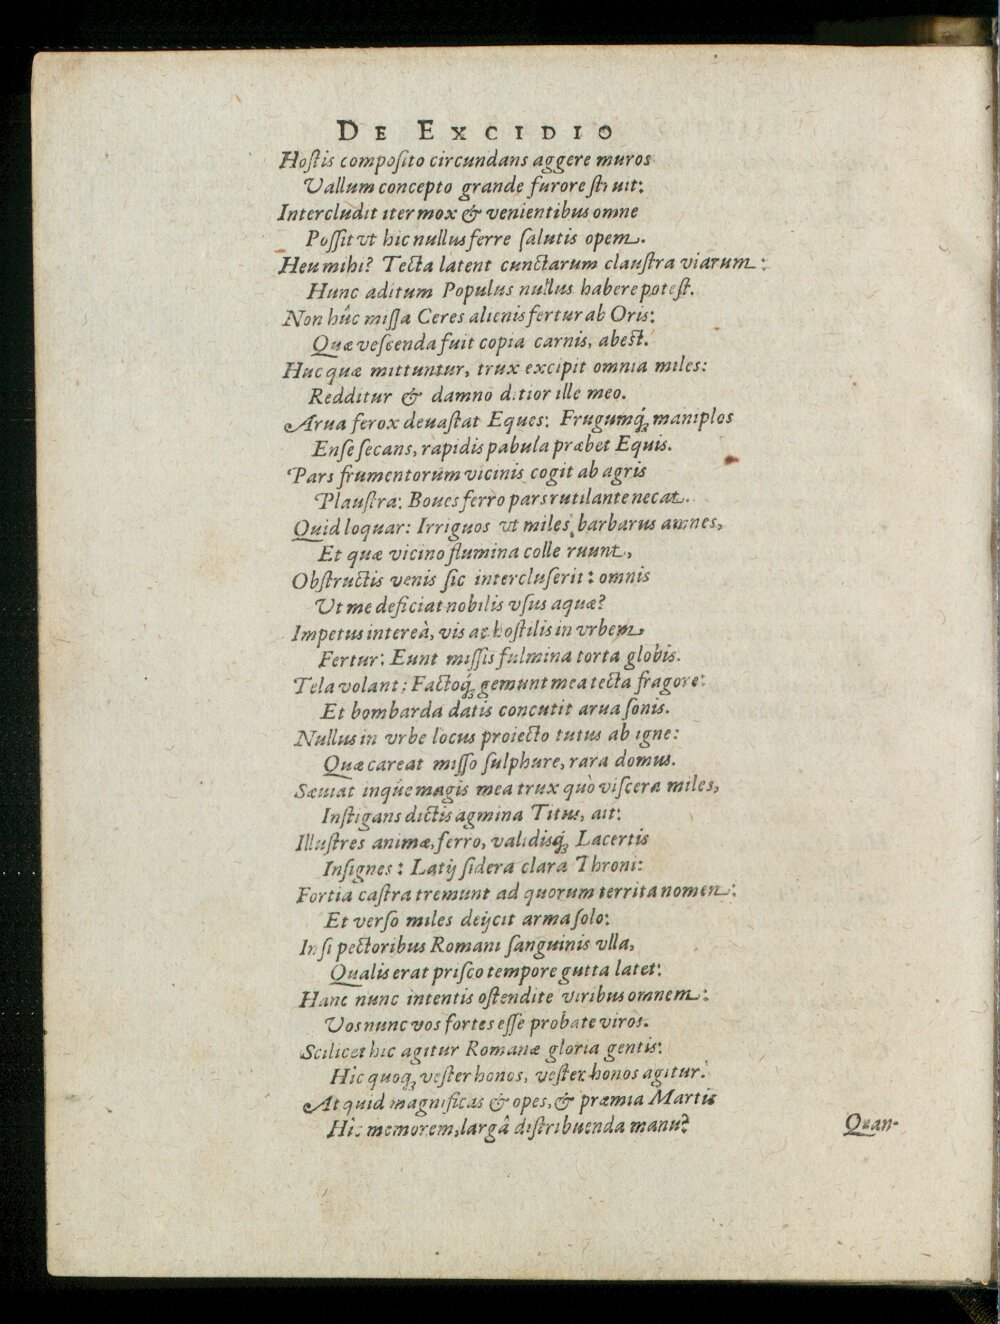 DE EXCIDIO
Hostis composito circundans aggere muros
Vallum concepto grande furore struit:
Intercludit iter mox & venientibus omne
Possit vt hic nullus ferre salutis opem.
Heu mihi? Tecta latent cunctarum claustra viarum:
Hunc aditum Populus nullus habere potest.
Non hûc missa Ceres alienis fertur ab Oris:
Quæ vescenda fuit copia carnis, abest.
Huc quæ mittuntur, trux excipit omnia miles:
Redditur & damno ditior ille meo.
Arua ferox deuastat Eques: Frugumq́; maniplos
Ense secans, rapidis pabula præbet Equis.
Pars frumentorum vicinis cogit ab agris
Plaustra: Boues ferro pars rutilante necat.
Quid loquar: Irriguos vt miles, barbarus amnes,
Et quæ vicino flumina colle ruunt,
Obstructis venis sic intercluserit: omnis
Vt me deficiat nobilis vsus aquæ?
Impetus intereà, vis ac hostilis in vrbem
Fertur: Eunt missis fulmina torta globis.
Tela volant: Factoq́; gemunt mea tecta fragore:
Et bombarda datis concutit arua sonis.
Nullus in vrbe locus proiecto tutus ab igne:
Quæ careat misso sulphure, rara domus.
Sæuiat inq́ue magis mea trux quò viscera miles,
Instigans dictis agmina Titus, ait:
Illustres animæ, ferro, validisq́; Lacertis
Insignes: Latij sidera clara Throni:
Fortia castra tremunt ad quorum territa nomen:
Et verso miles deijcit arma solo:
In si pectoribus Romani sanguinis vlla,
Qualis erat prisco tempore gutta latet:
Hanc nunc intentis ostendite viribus omnem:
Vos nunc vos fortes esse probate viros.
Scilicet hic agitur Romanæ gloria gentis:
Hîc quoq; vester honos, vester honos agitur.
At quid magnificas & opes, & præmia Martis
Hîc memorem, largâ distribuenda manu?
Quan-